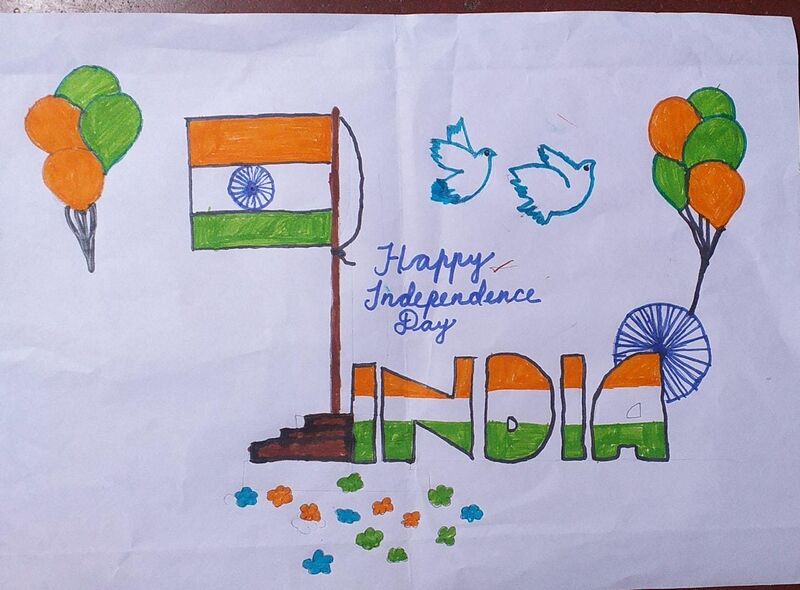 Happy
Independence
Day
INDIA